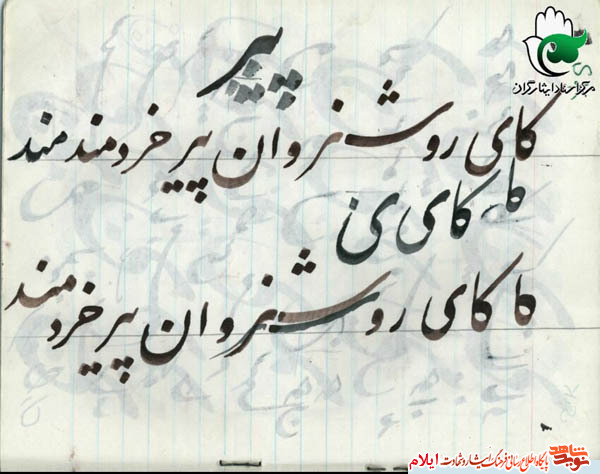 پیر
کای روشنروان پیر خردمند مند
کا کای ی
کا کای روشنروان پیر خردمند
مرکز اسناد ایثارگران
نوید شاهد پایگاه اطلاع رسانی فرهنگ ایثار و شهادت ایلام